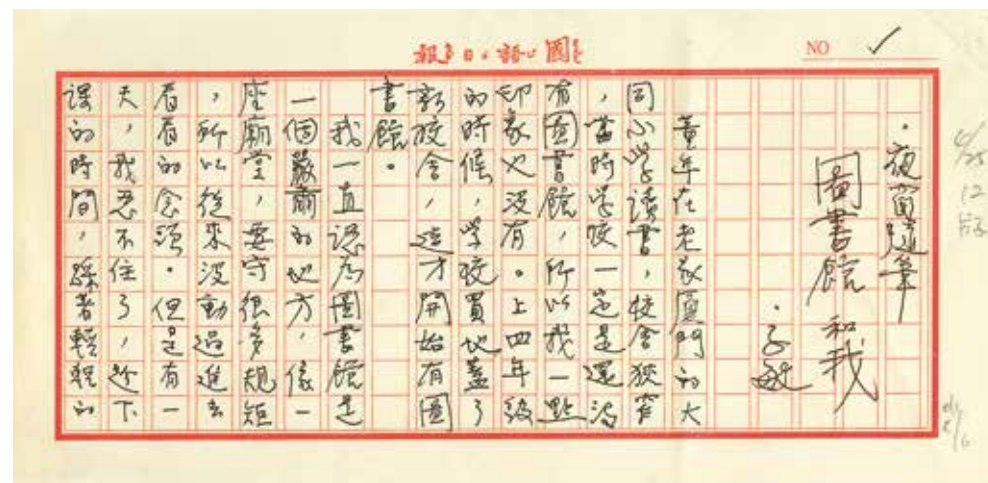 國語日報
NO ✓
・夜窗隨筆
圖書館和我
・子敏
童年在老家廈門的大
同小學讀書,校舍狹窄
,當時學校一定是還沒
有圖書館,所以我一點
印象也沒有。上四年級
的時候,學校買地蓋了
新校舍,這才開始有圖
書館。
我一直認為圖書館是
一個嚴肅的地方,像一
座廟堂,要守很多規矩
,所以從來沒動過進去
看看的念頭。但是有一
天,我忍不住了,趁下
課的時間,踩著輕輕的
4/25
12